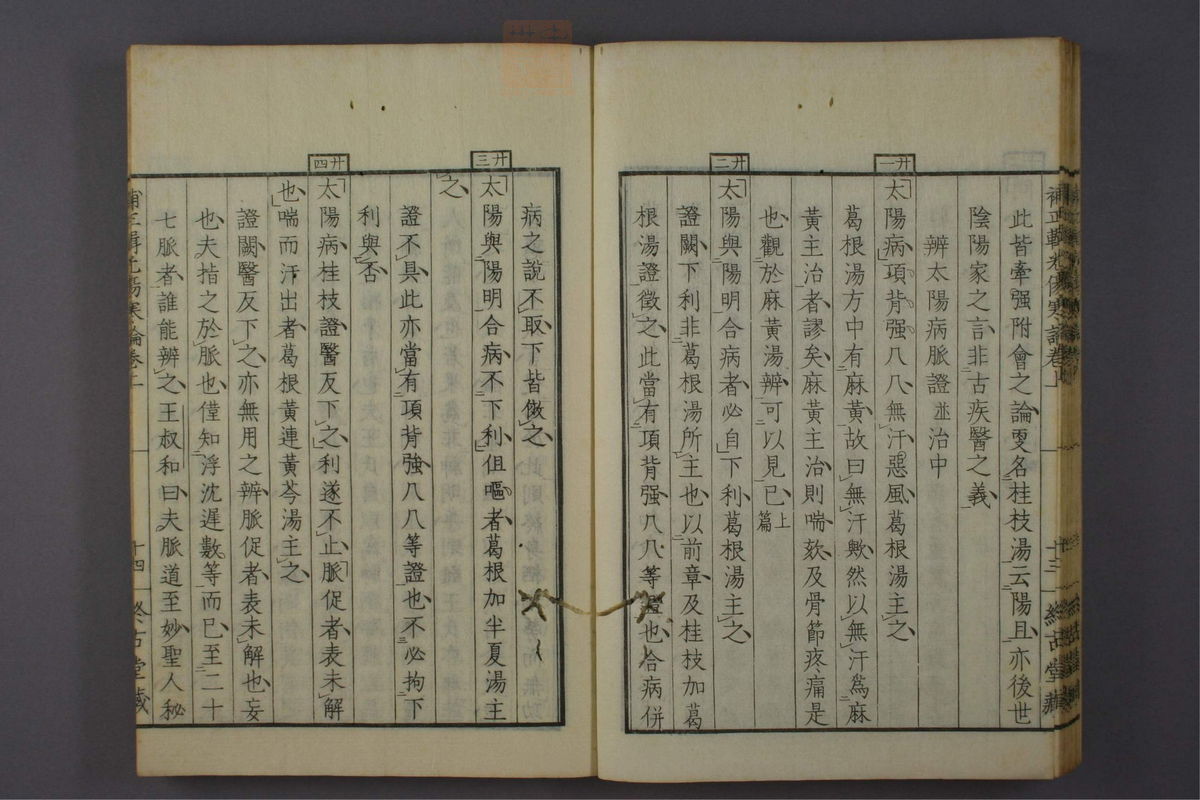 補正輯光傷寒論卷上 十三 終古堂藏
此皆牽强附會之論耍名桂枝湯云陽且亦後世
陰陽家之言非古疾醫之義
辨太陽病脈證並治中
廿一
太陽病項背强几几無汗惡風葛根湯主之
葛根湯方中有麻黃故曰無汗歟然以無汗爲麻
黃主治者謬矣麻黃主治則喘欬及骨節疼痛是
也觀於麻黃湯辨可以見已上篇
廿二
太陽與陽明合病者必自下利葛根湯主之
證闕下利非葛根湯所主也以前章及桂枝加葛
根湯證徵之此當有項背强几几等證也合病併
病之說不取下皆倣之
廿三
太陽與陽明合病不下利但嘔者葛根加半夏湯主
之
證不具此亦當有項背強几几等證也不必拘下
利與否
廿四
太陽病桂枝證醫反下之利遂不止脈促者表未解
也喘而汗出者葛根黃連黃芩湯主之
證闕醫反下之亦無用之辨脈促者表未解也妄
也夫指之於脈也僅知浮沈遲數等而已至二十
七脈者誰能辨之王叔和曰夫脈道至妙聖人秘
十四 終古堂藏